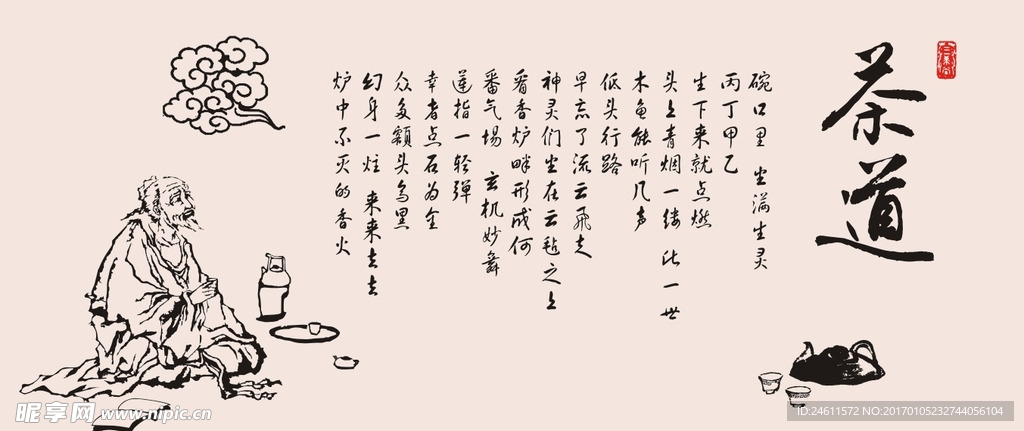 茶道
碗口里 坐满生灵
丙丁甲乙
生下来就点燃
头上青烟一缕 此一世
木鱼能听几声
低头行路
早忘了流云飞走
神灵们坐在云毡之上
看香炉畔形成何
番气场 玄机妙舞
莲指一轻弹
幸者点石为金
众多额头乌黑
幻身一炷 来来去去
炉中不灭的香火
昵享网 www.nipic.cn
ID:24611572 NO:20170105232744056104